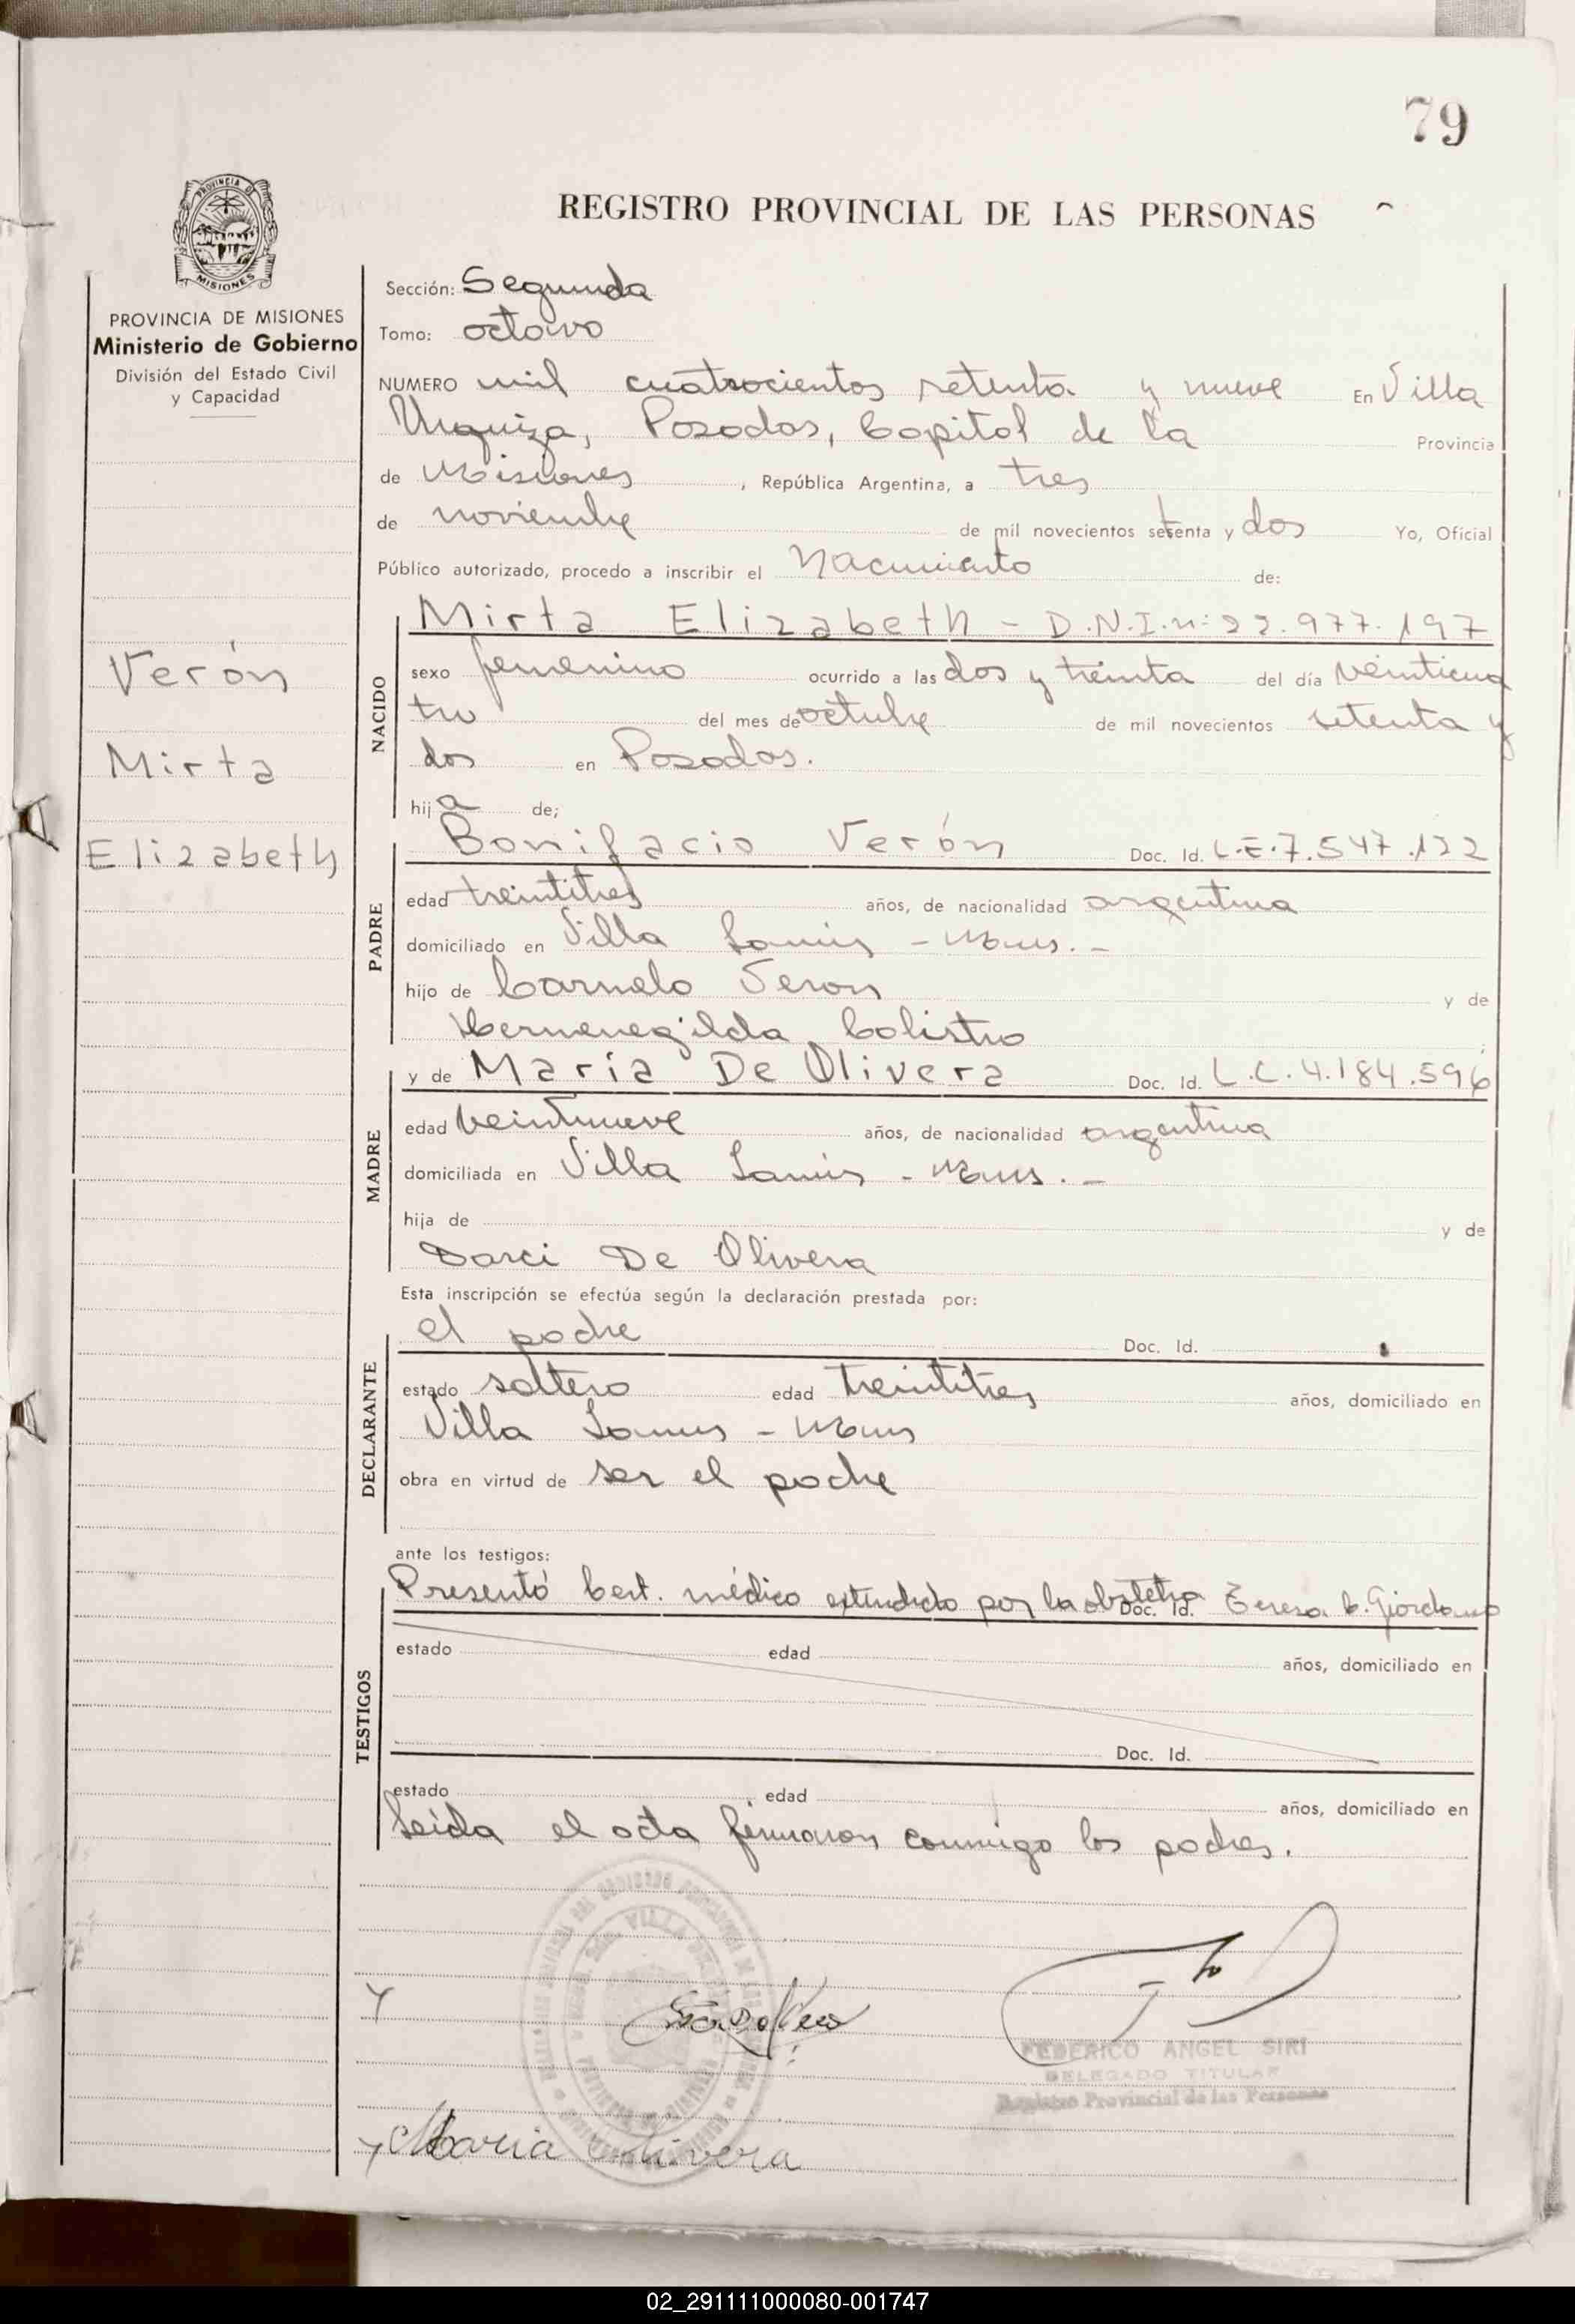 79
REGISTRO PROVINCIAL DE LAS PERSONAS
PROVINCIA DE MISIONES
Ministerio de Gobierno
División del Estado Civil
y Capacidad
Verón
Mirta
Elizabeth
Sección: Segunda
Tomo: octavo
NUMERO mil cuatrocientos setenta y nueve En Villa
Urquiza, Posadas, Capital de la Provincia
de Misiones, República Argentina, a tres
de noviembre de mil novecientos setenta y dos Yo, Oficial
Público autorizado, procedo a inscribir el Nacimiento de:
NACIDO
Mirta Elizabeth - D.N.I.n: 22.977.197
sexo femenino ocurrido a las dos y treinta del día veinticua
tro del mes de octubre de mil novecientos setenta y
dos en Posadas.
hija de;
PADRE
Bonifacio Verón Doc. Id. L.E.7.547.122
edad treintitres años, de nacionalidad argentina
domiciliado en Villa Lanús - Mnes. -
hijo de Carmelo Veron y de
Hermenegilda Colistro
MADRE
y de María De Olivera Doc. Id. L.C.4.184.596
edad veintinueve años, de nacionalidad argentina
domiciliada en Villa Lanús - Mnes. -
hija de y de
Darci De Olivera
Esta inscripción se efectúa según la declaración prestada por:
DECLARANTE
el padre Doc. Id.
estado soltero edad treintitres años, domiciliado en
Villa Lanus - Mnes
obra en virtud de ser el padre
ante los testigos:
TESTIGOS
Presentó Cert. médico extendido por la obstetra Teresa C. Giordano
Doc. Id.
estado edad años, domiciliado en
Doc. Id.
estado edad años, domiciliado en
Leída el acta firmaron conmigo los padres.
FEDERICO ANGEL SIRI
DELEGADO TITULAR
Registro Provincial de las Personas
Maria Olivera
02_291111000080-001747